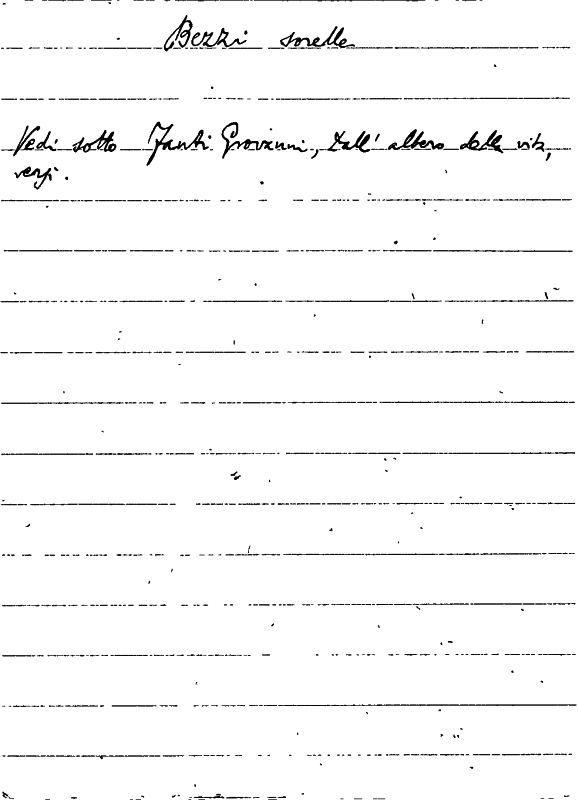 Bezzi sorelle
Vedi sotto Fanti Giovanni, Dall' albero della vita,
versi.